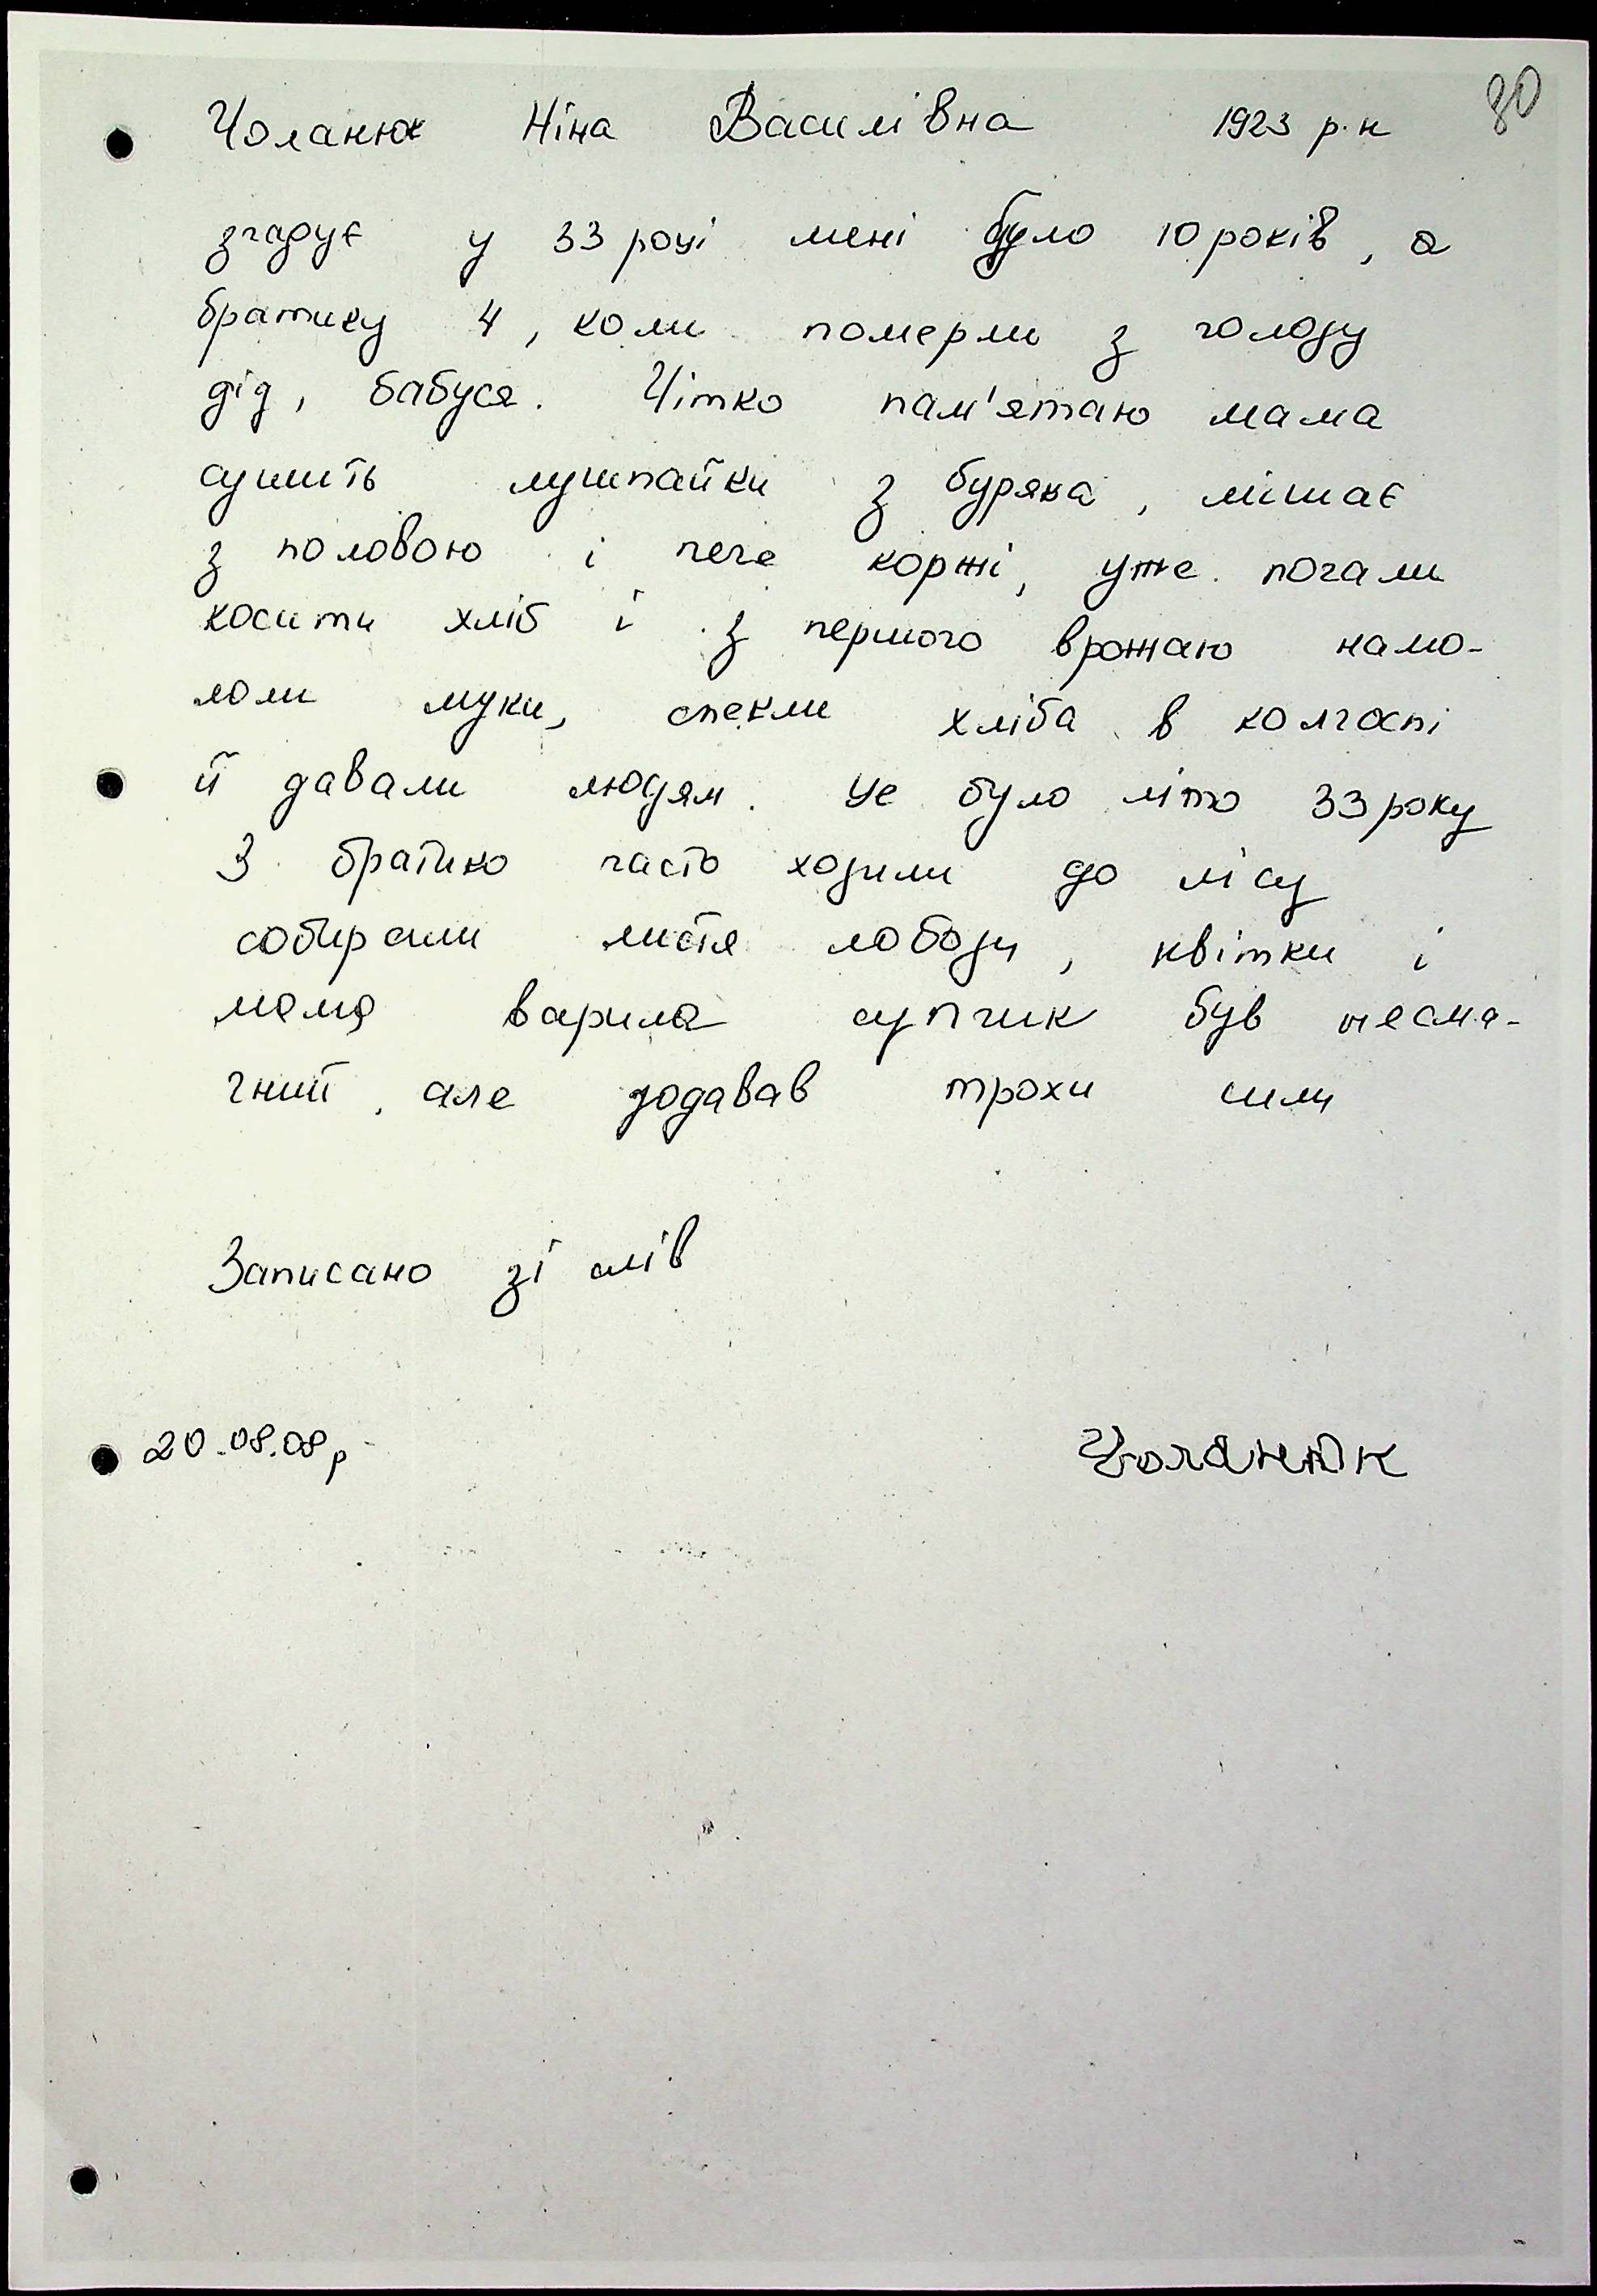 80
Чоланюк Ніна Василівна 1923 р.н
згадує у 33 році мені було 10 років, а
братику 4, коли померли з голоду
дід, бабуся. Чітко пам'ятаю мама
сушить лушпайки з буряка, мішає
з половою і пече коржі, уже почали
косити хліб і з першого врожаю намо-
лоли муки, спекли хліба в колгоспі
й давали людям. Це було літо 33 року
З братико часто ходили до лісу
собирали листя лободи, квітки і
мама варила супчик був несма-
чний, але додавав трохи сили
Записано зі слів
20.08.08р Чоланюк